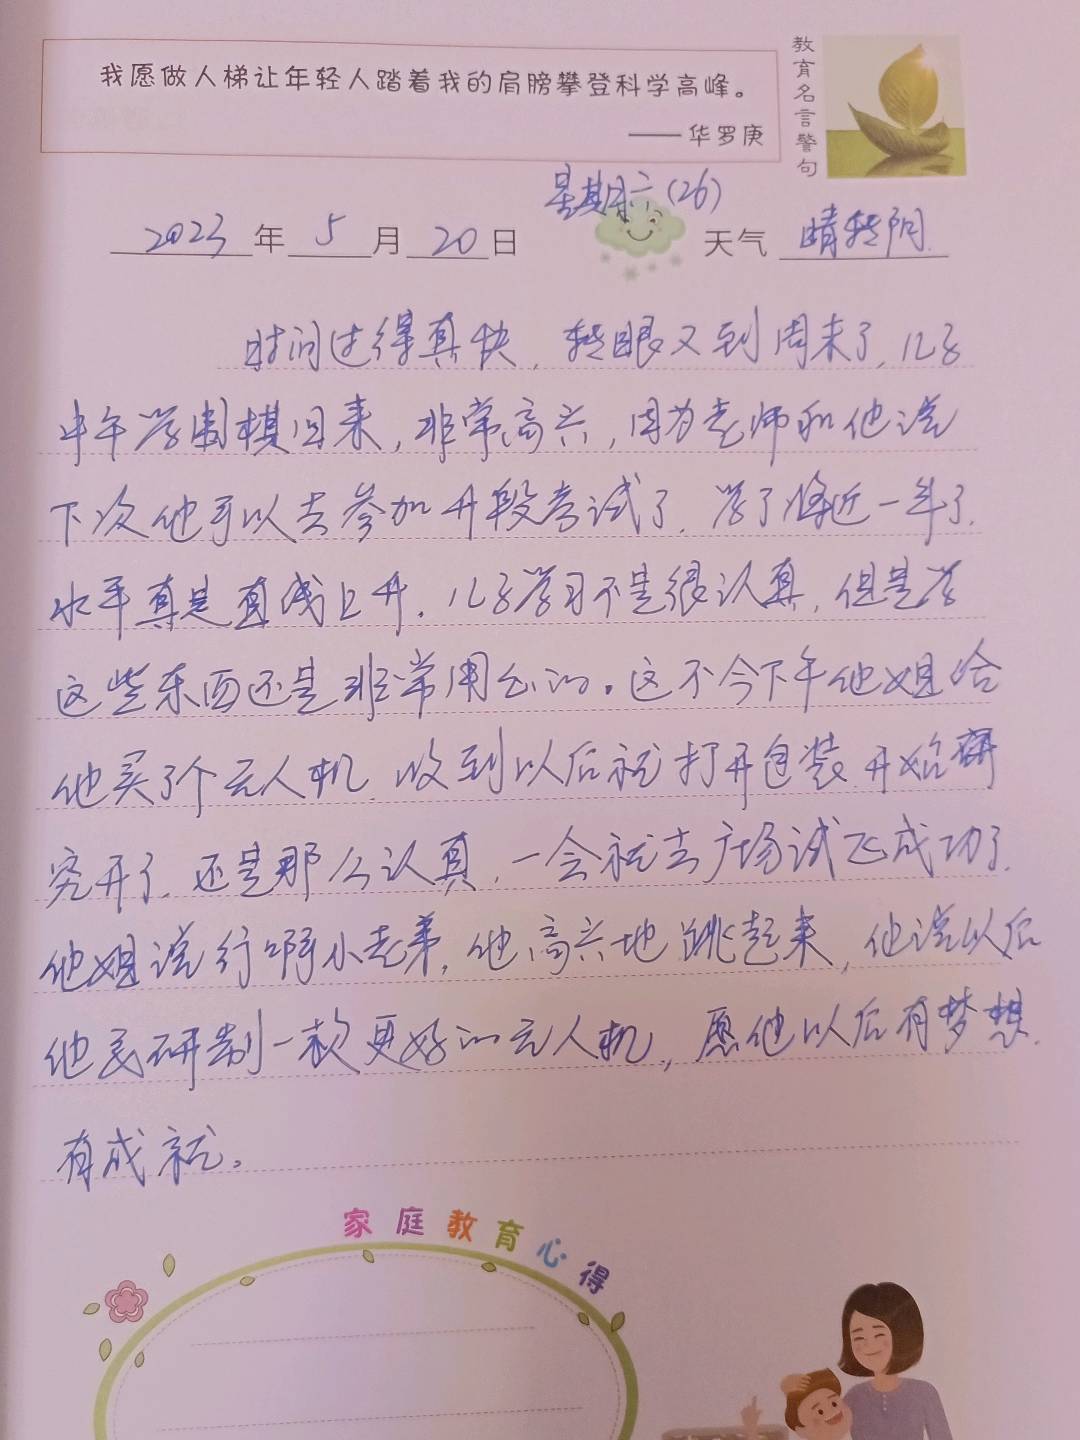 我愿做人梯让年轻人踏着我的肩膀攀登科学高峰。
——华罗庚
教育名言警句
星期六(26)
2023年5月20日 天气 晴转阴
时间过得真快,转眼又到周末了,儿子
中午学围棋回来,非常高兴,因为老师和他说
下次他可以去参加升段考试了.学了将近一年了.
水平真是直线上升.儿子学习不是很认真,但是学
这些东西还是非常用心的。这不今下午他姐给
他买了个无人机.收到以后就打开包装.开始研
究开了.还是那么认真,一会就去广场试飞成功了.
他姐说行啊小老弟,他高兴地跳起来,他说以后
他要研制一款更好的无人机,愿他以后有梦想.
有成就。
家庭教育心得